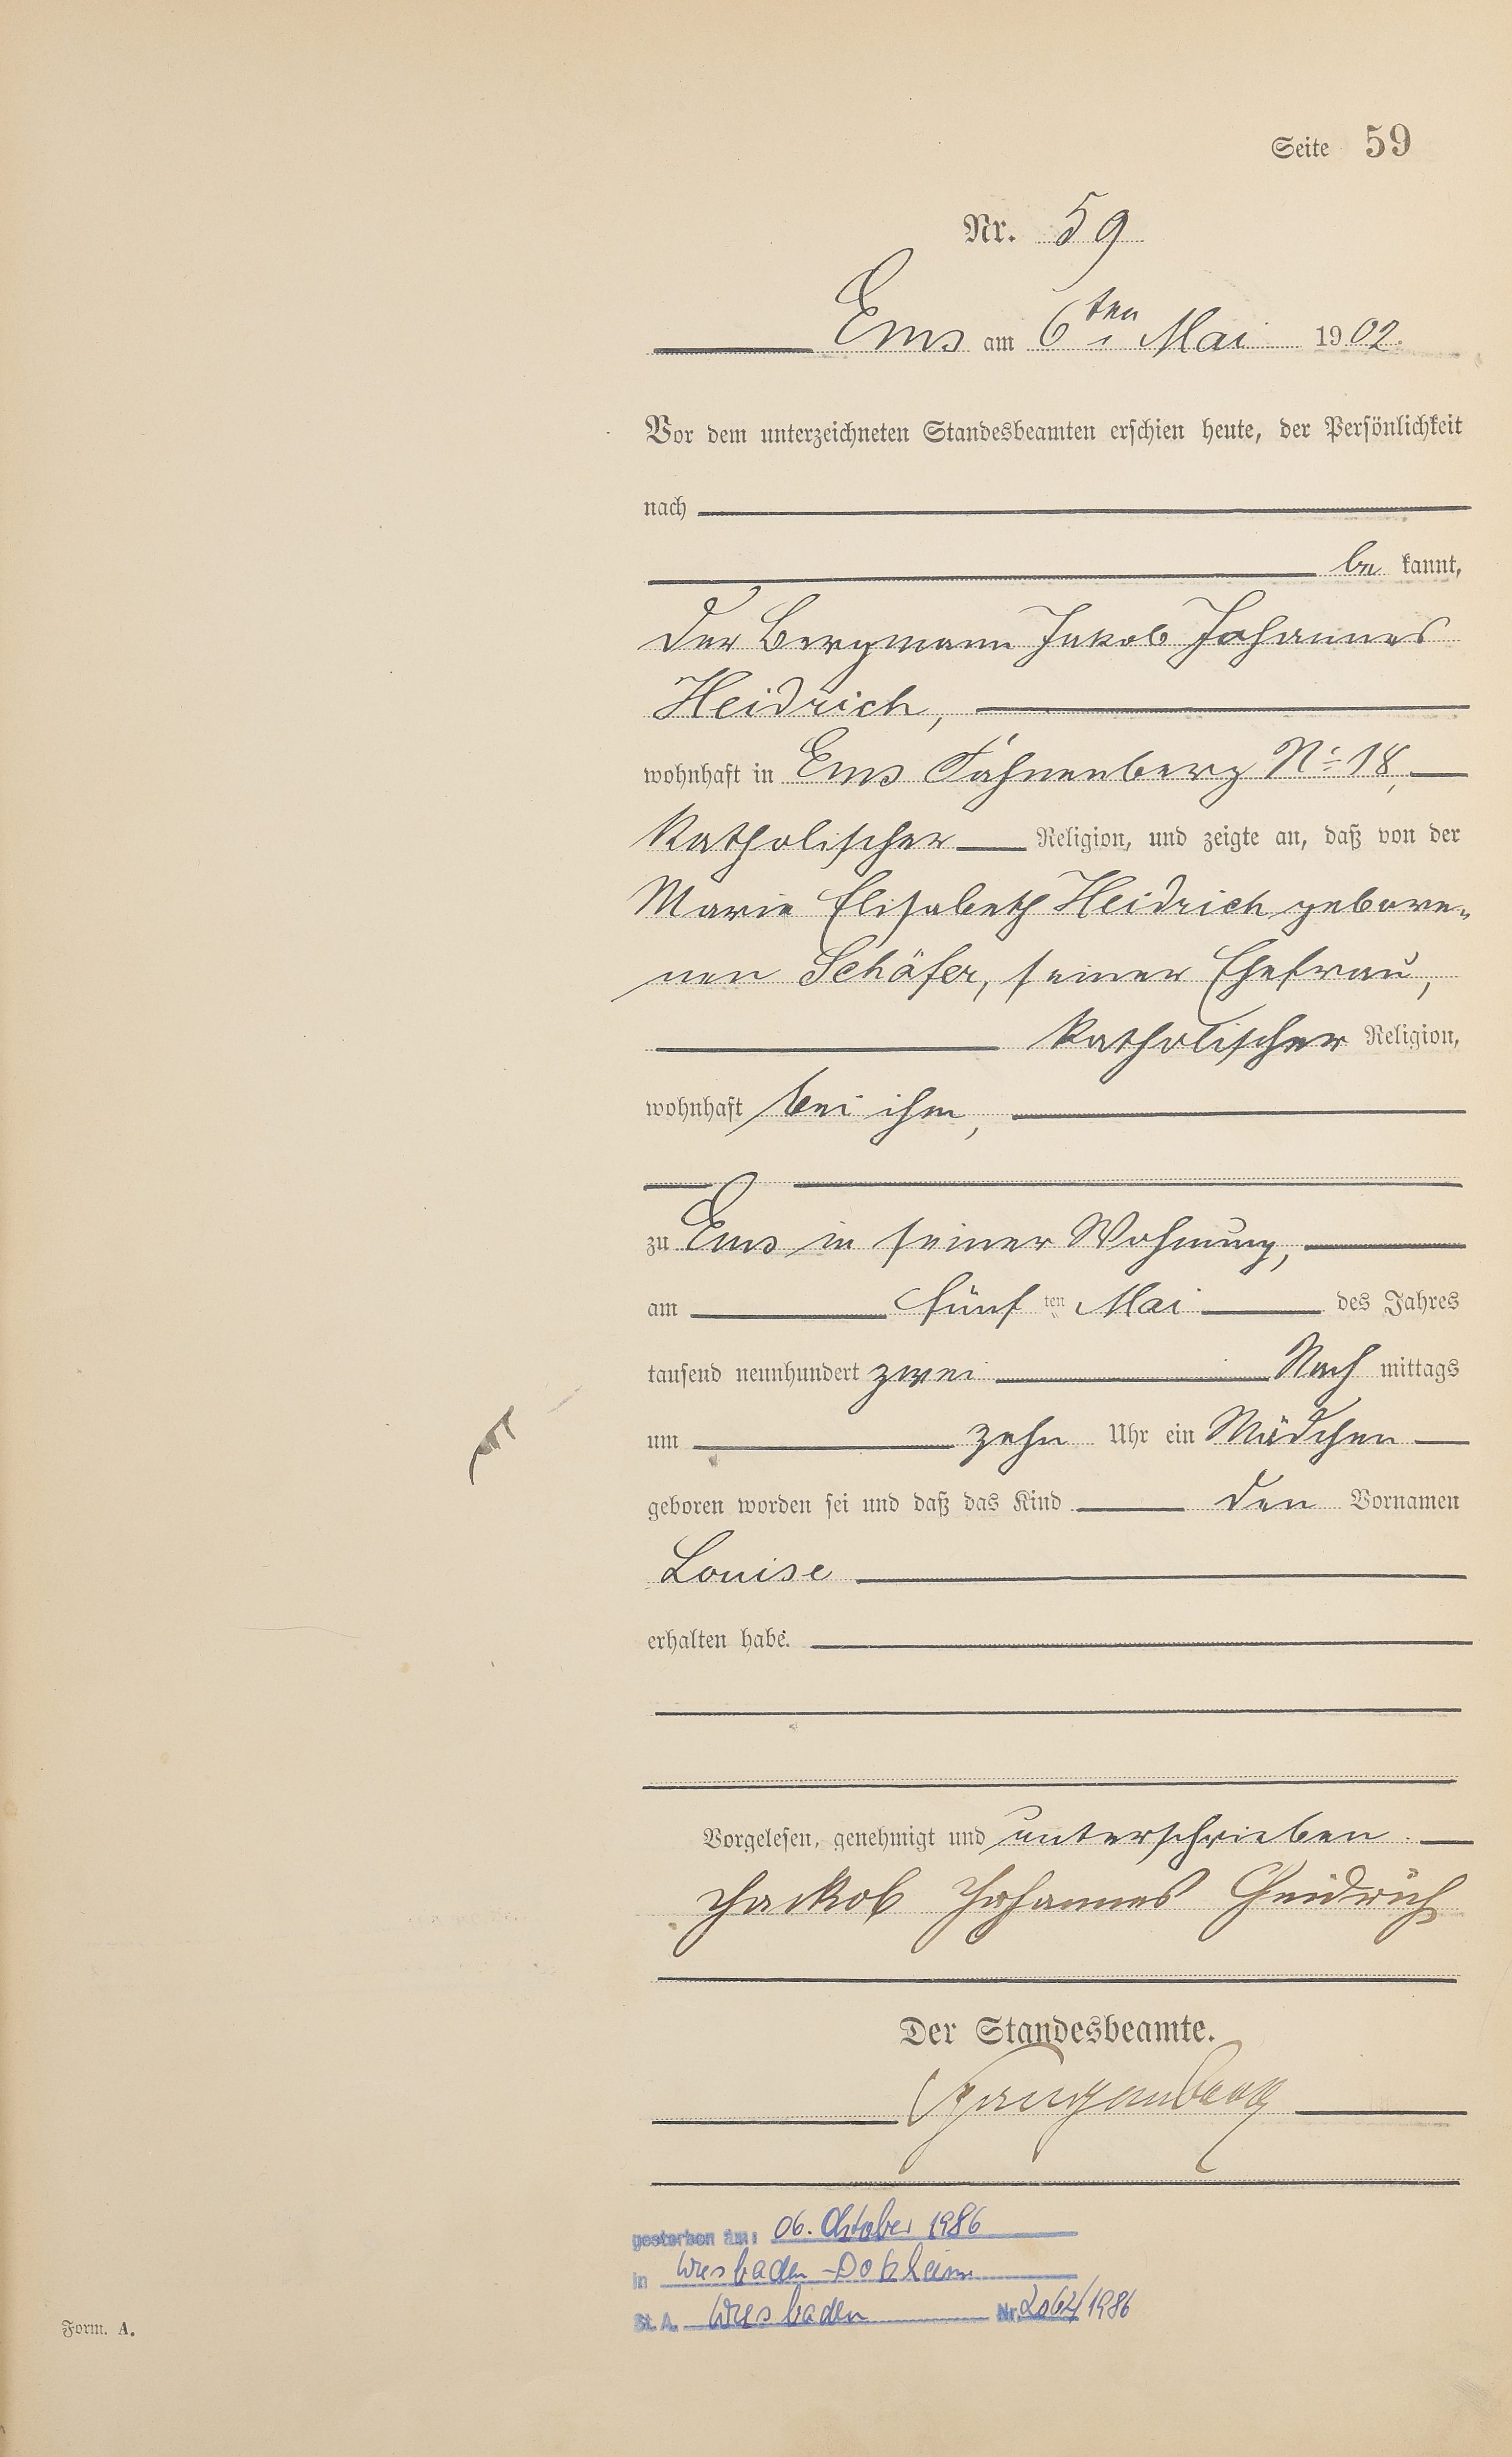 Seite 59
Nr. 59
Ems am 6ten Mai 1902.
Vor dem unterzeichneten Standesbeamten erschien heute, der Persönlichkeit
nach
be kannt,
der Bergmann Jakob Johannes
Heidrich,
wohnhaft in Ems Fahnenberg No 18,
katholischer Religion, und zeigte an, daß von der
Marie Elisabeth Heidrich gebore-
nen Schäfer, seiner Ehefrau,
katholischer Religion,
wohnhaft bei ihm,
zu Ems in seiner Wohnung,
am fünf ten Mai des Jahres
tausend neunhundert zwei Nach mittags
um zehn Uhr ein Mädchen
geboren worden sei und daß das Kind den Vornamen
Louise
erhalten habe.
Vorgelesen, genehmigt und unterschrieben.
Jackob Johannes Heidrich
Der Standesbeamte.
gestorben am: 06. Oktober 1986
in Wiesbaden-Dotzheim
St. A. Wiesbaden Nr. 2062/1986
Form. A.